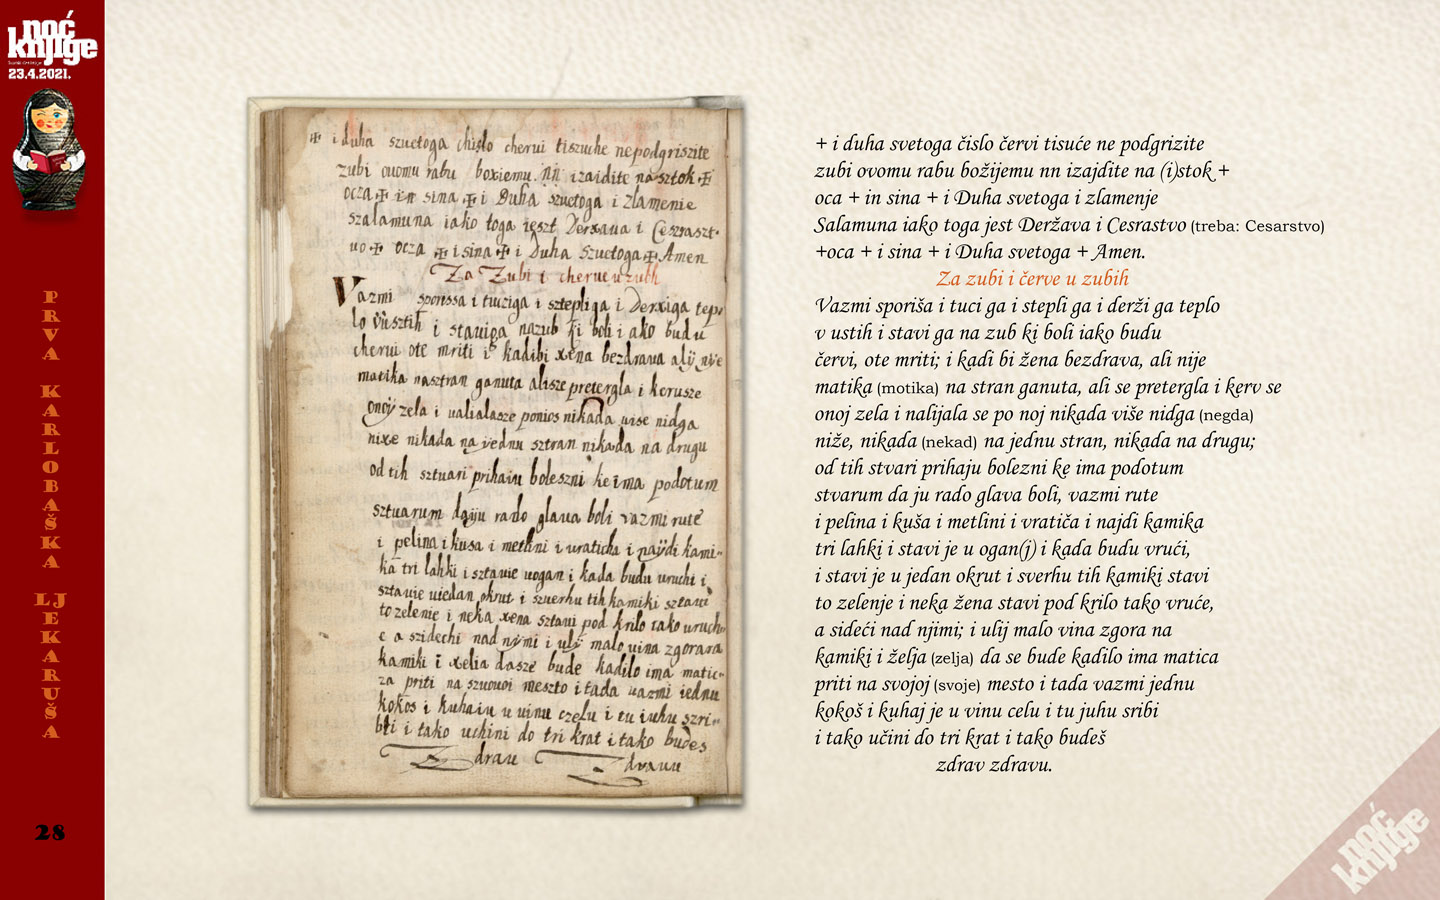 noć
knjige
23.4.2021.
PRVA KARLOBAŠKA LJEKARUŠA
28
✠ i duha szuetoga chislo cherui tiszuche nepodgriszite
zubi ouomu rabu boxiemu nn izaidite na sztok ✠
ocza ✠ i in sina ✠ i Duha szuetoga i zlamenie
szalamuna iako toga ieszt Derxaua i Ceszraszt-
uo ✠ ocza ✠ i sina ✠ i Duha szuetoga ✠ Amen
Za Zubi i cherue u zubih
Vazmi sporissa i tucziga i sztepliga i derxiga tep
lo vusztih i stauiga nazub ki boli i ako budu
cherui ote mriti i kadibi xena bezdraua alij nye
matika nasztran ganuta alisze pretergla i kerusze
onoj zela i ualialasze ponios nikada uise nidga
nixe nikada na jednu sztran nikada na drugu
od tih sztuari prihaiu boleszni ke ima podotum
sztuarum daiju rado glaua boli vazmi rute
i pelina i kusa i metlini i uraticha i naydi kami-
ka tri lahki i sztauie uogan i kada budu uruchi i
sztauie uiedan okrut i suerhu tih kamiki sztaui
to zelenie i neka xena sztaui pod krilo tako uruch-
e a szidechi nad nymi i ulij malo uina zgorana
kamiki i xelia da sze bude kadilo ima matic-
za priti na szuouoi meszto i tada uazmi iednu
kokos i kuhaiu u uinu czelu i tu iuhu szri-
bli i tako uchini do tri krat i tako budes
Zdrau Zdrauu
+ i duha svetoga čislo červi tisuće ne podgrizite
zubi ovomu rabu božijemu nn izajdite na (i)stok +
oca + in sina + i Duha svetoga i zlamenje
Salamuna iako toga jest Deržava i Cesrastvo (treba: Cesarstvo)
+oca + i sina + i Duha svetoga + Amen.
Za zubi i červe u zubih
Vazmi sporiša i tuci ga i stepli ga i derži ga teplo
v ustih i stavi ga na zub ki boli iako budu
červi, ote mriti; i kadi bi žena bezdrava, ali nije
matika (motika) na stran ganuta, ali se pretergla i kerv se
onoj zela i nalijala se po noj nikada više nidga (negda)
niže, nikada (nekad) na jednu stran, nikada na drugu;
od tih stvari prihaju bolezni ke ima podotum
stvarum da ju rado glava boli, vazmi rute
i pelina i kuša i metlini i vratiča i najdi kamika
tri lahki i stavi je u ogan(j) i kada budu vrući,
i stavi je u jedan okrut i sverhu tih kamiki stavi
to zelenje i neka žena stavi pod krilo tako vruće,
a sideći nad njimi; i ulij malo vina zgora na
kamiki i želja (zelja) da se bude kadilo ima matica
priti na svojoj (svoje) mesto i tada vazmi jednu
kokoš i kuhaj je u vinu celu i tu juhu sribi
i tako učini do tri krat i tako budeš
zdrav zdravu.
noć
knjige